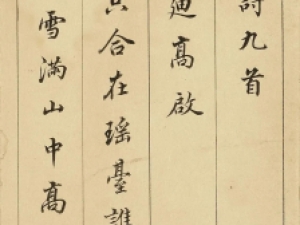 詩九首
迪高啟
只合在瑤臺誰
雪滿山中高